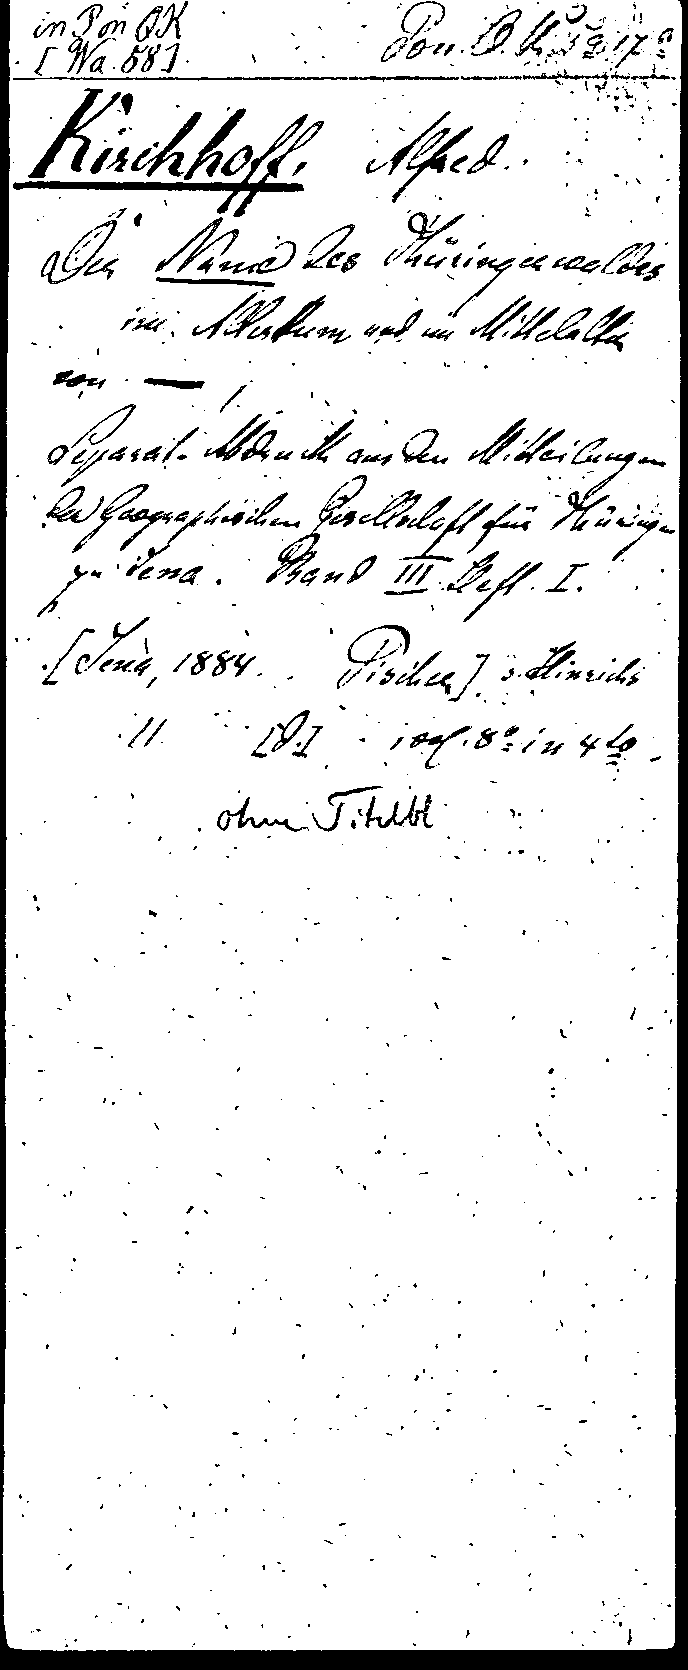 in Pon QK
[Wa. 58]
Pon. 17a
Kirchhoff, Alfred.
Der Name des Thüringerwaldes
im Alterthum und im Mittelalter
von —,
Separat-Abdruck aus den Mitteilungen
der Geographischen Gesellschaft für Thüringen
zu Jena. Band III Heft I.
[Jena, 1884. Fischer] s. Hinrichs
11 [S.] 8° in 4to.
ohne Titelbl